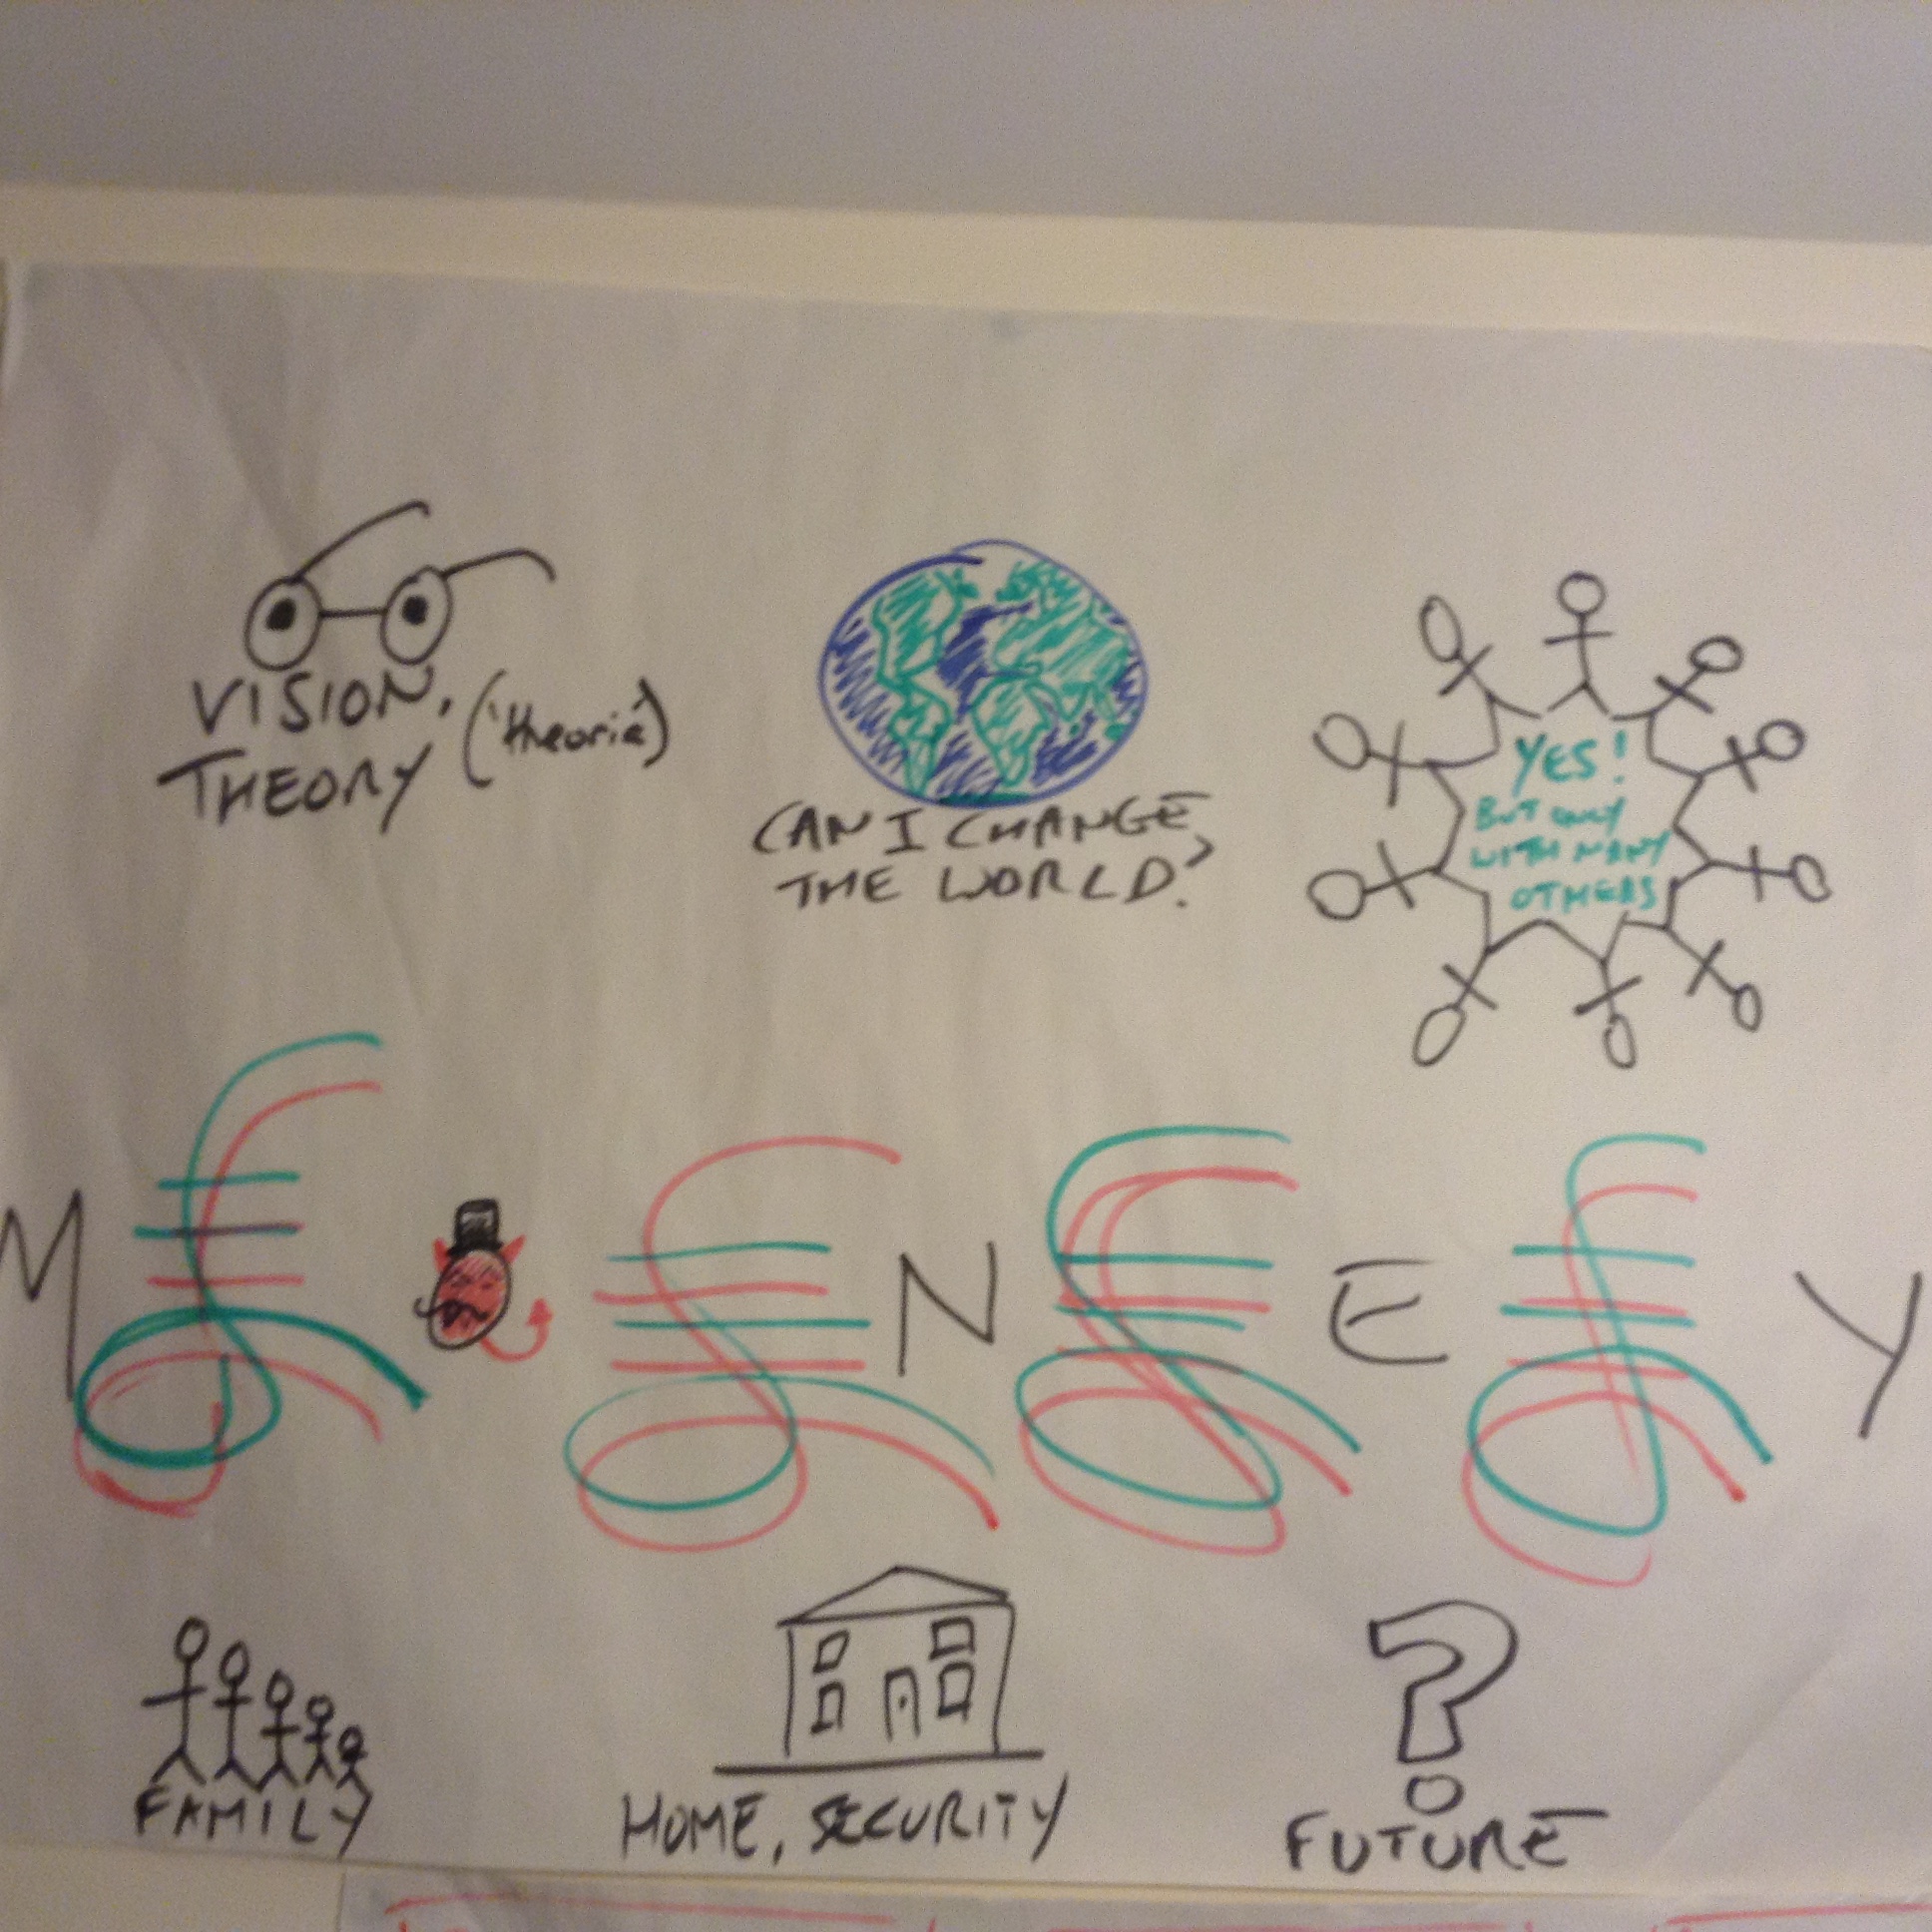 VISION,
THEORY ('theoria')
CAN I CHANGE
THE WORLD?
YES!
BUT ONLY
WITH MANY
OTHERS
M £ £ N £ E £ Y
FAMILY
HOME, SECURITY
?
FUTURE